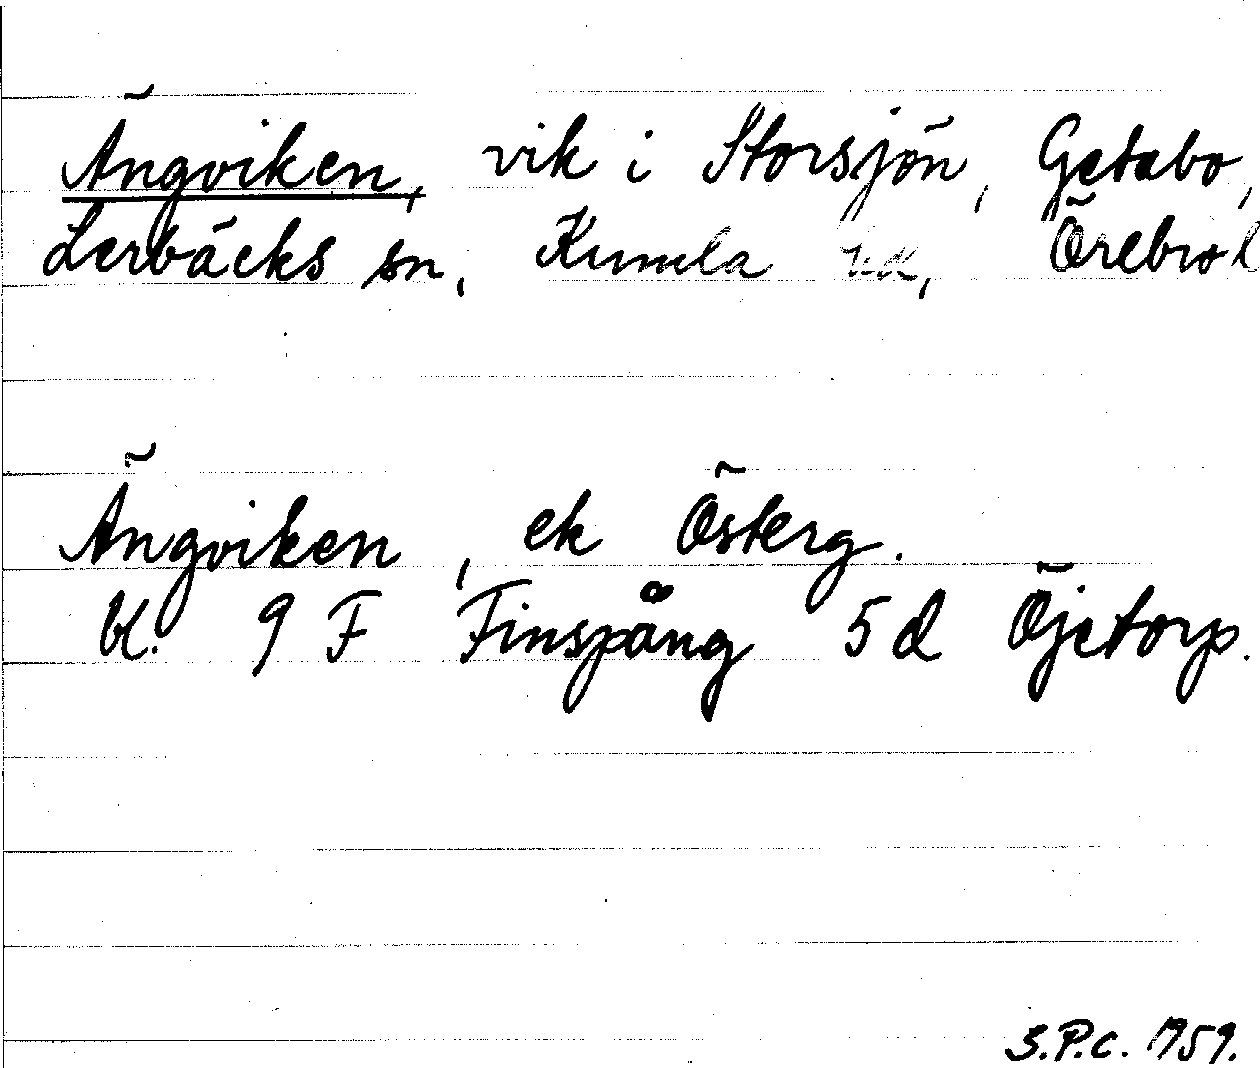 Ängviken, vik i Storsjön, Getabo,
Lerbäcks sn, Kumla hd, Örebro l
Ängviken, ek Österg.
bl. 9 F Finspång 5 d Öjetorp.
S.P.C. 1959.